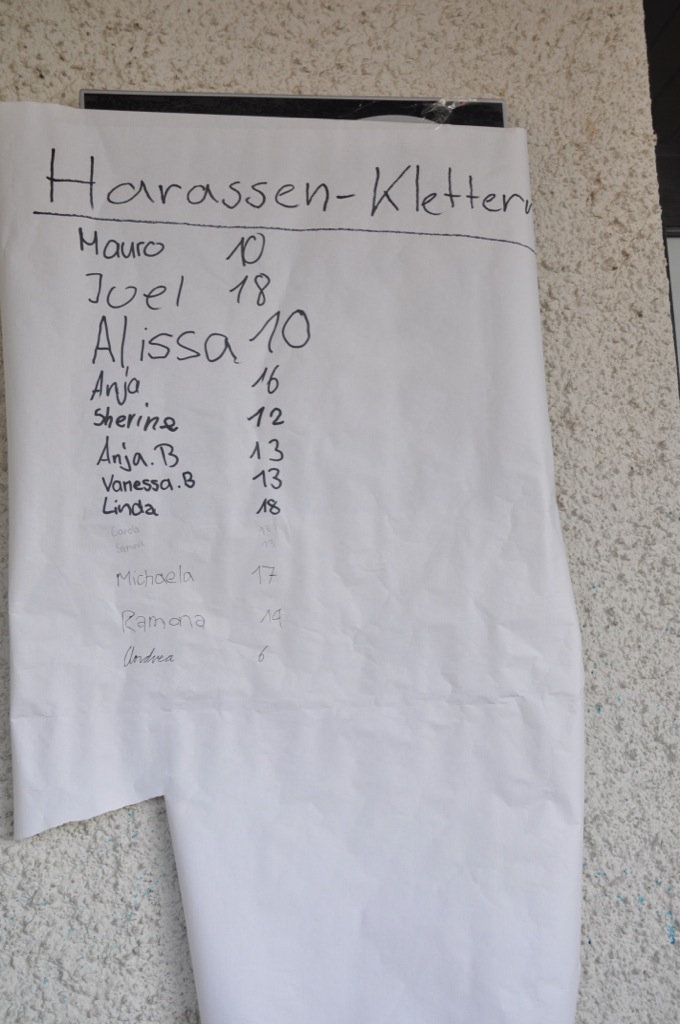 Harassen-Klettern
Mauro 10
Joel 18
Alissa 10
Anja 16
Sherine 12
Anja.B 13
Vanessa.B 13
Linda 18
Carola
13
Michaela 17
Ramona 14
Andrea 6